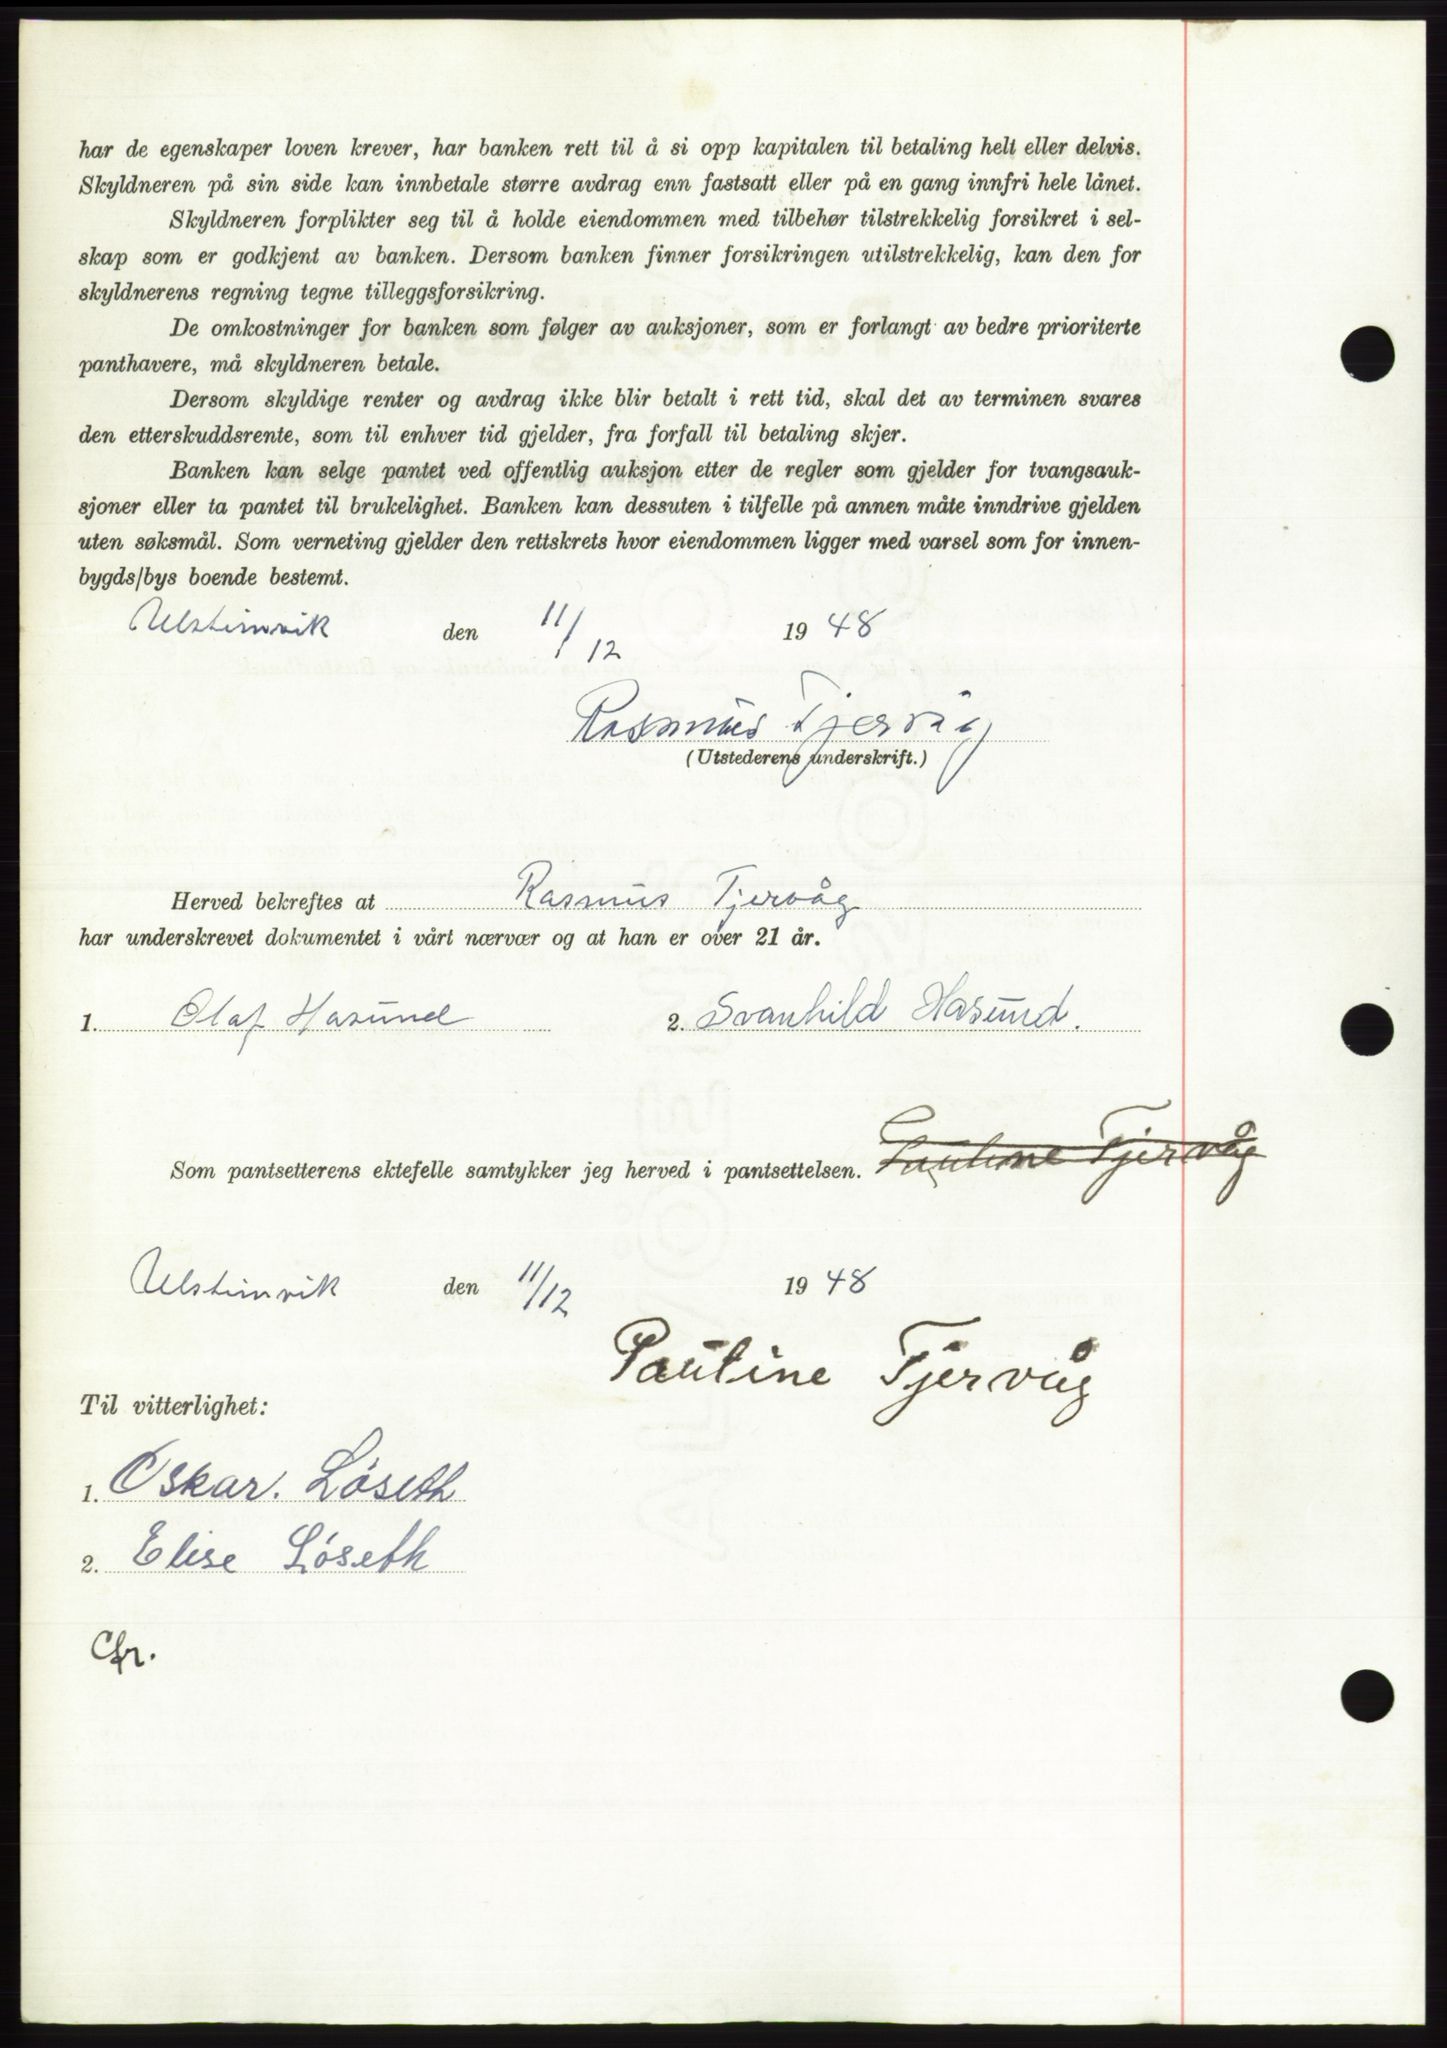 har de egenskaper loven krever, har banken rett til å si opp kapitalen til betaling helt eller delvis.
Skyldneren på sin side kan innbetale større avdrag enn fastsatt eller på en gang innfri hele lånet.
Skyldneren forplikter seg til å holde eiendommen med tilbehør tilstrekkelig forsikret i sel-
skap som er godkjent av banken. Dersom banken finner forsikringen utilstrekkelig, kan den for
skyldnerens regning tegne tilleggsforsikring.
De omkostninger for banken som følger av auksjoner, som er forlangt av bedre prioriterte
panthavere, må skyldneren betale.
Dersom skyldige renter og avdrag ikke blir betalt i rett tid, skal det av terminen svares
den etterskuddsrente, som til enhver tid gjelder, fra forfall til betaling skjer.
Banken kan selge pantet ved offentlig auksjon etter de regler som gjelder for tvangsauk-
sjoner eller ta pantet til brukelighet. Banken kan dessuten i tilfelle på annen måte inndrive gjelden
uten søksmål. Som verneting gjelder den rettskrets hvor eiendommen ligger med varsel som for innen-
bygds/bys boende bestemt.
Ulsteinvik den 11/12 1948
Rasmus Tjervåg
(Utstederens underskrift.)
Herved bekreftes at Rasmus Tjervåg
har underskrevet dokumentet i vårt nærvær og at han er over 21 år.
1. Olaf Hasund 2. Svanhild Hasund.
Som pantsetterens ektefelle samtykker jeg herved i pantsettelsen. Pauline Tjervåg
Ulsteinvik den 11/12 1948
Pauline Tjervåg
Til vitterlighet:
1. Oskar. Löseth
2. Elise Löseth